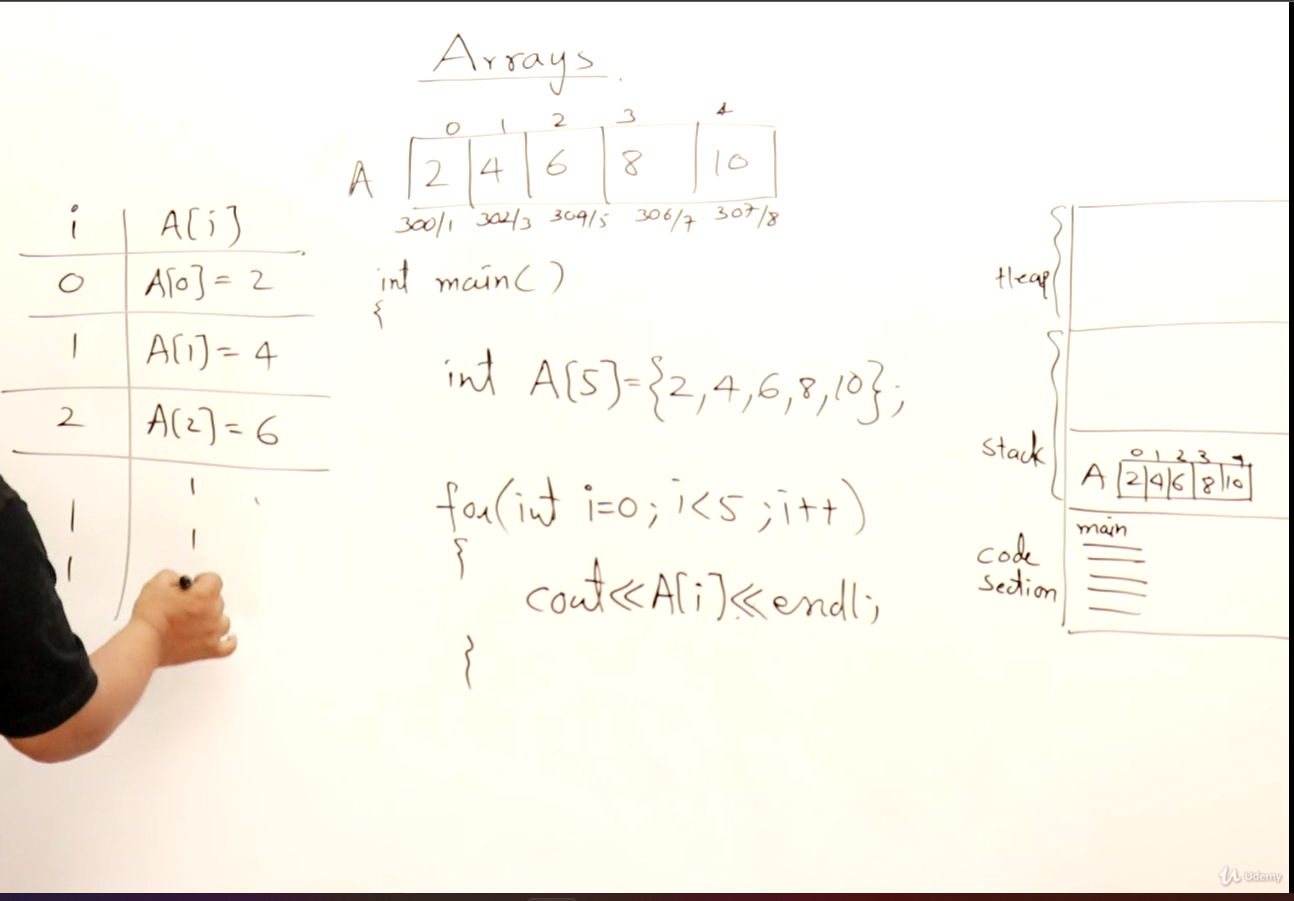 Arrays
0 1 2 3 4
A 2 4 6 8 10
300/1 302/3 304/5 306/7 307/8
i A[i]
0 A[0] = 2
1 A[1] = 4
2 A[2] = 6
int main()
{
int A[5]={2,4,6,8,10};
for(int i=0; i<5 ;i++)
{
cout<<A[i]<<endl;
}
Heap
stack
0 1 2 3 4
A 2 4 6 8 10
code
section
main
Udemy